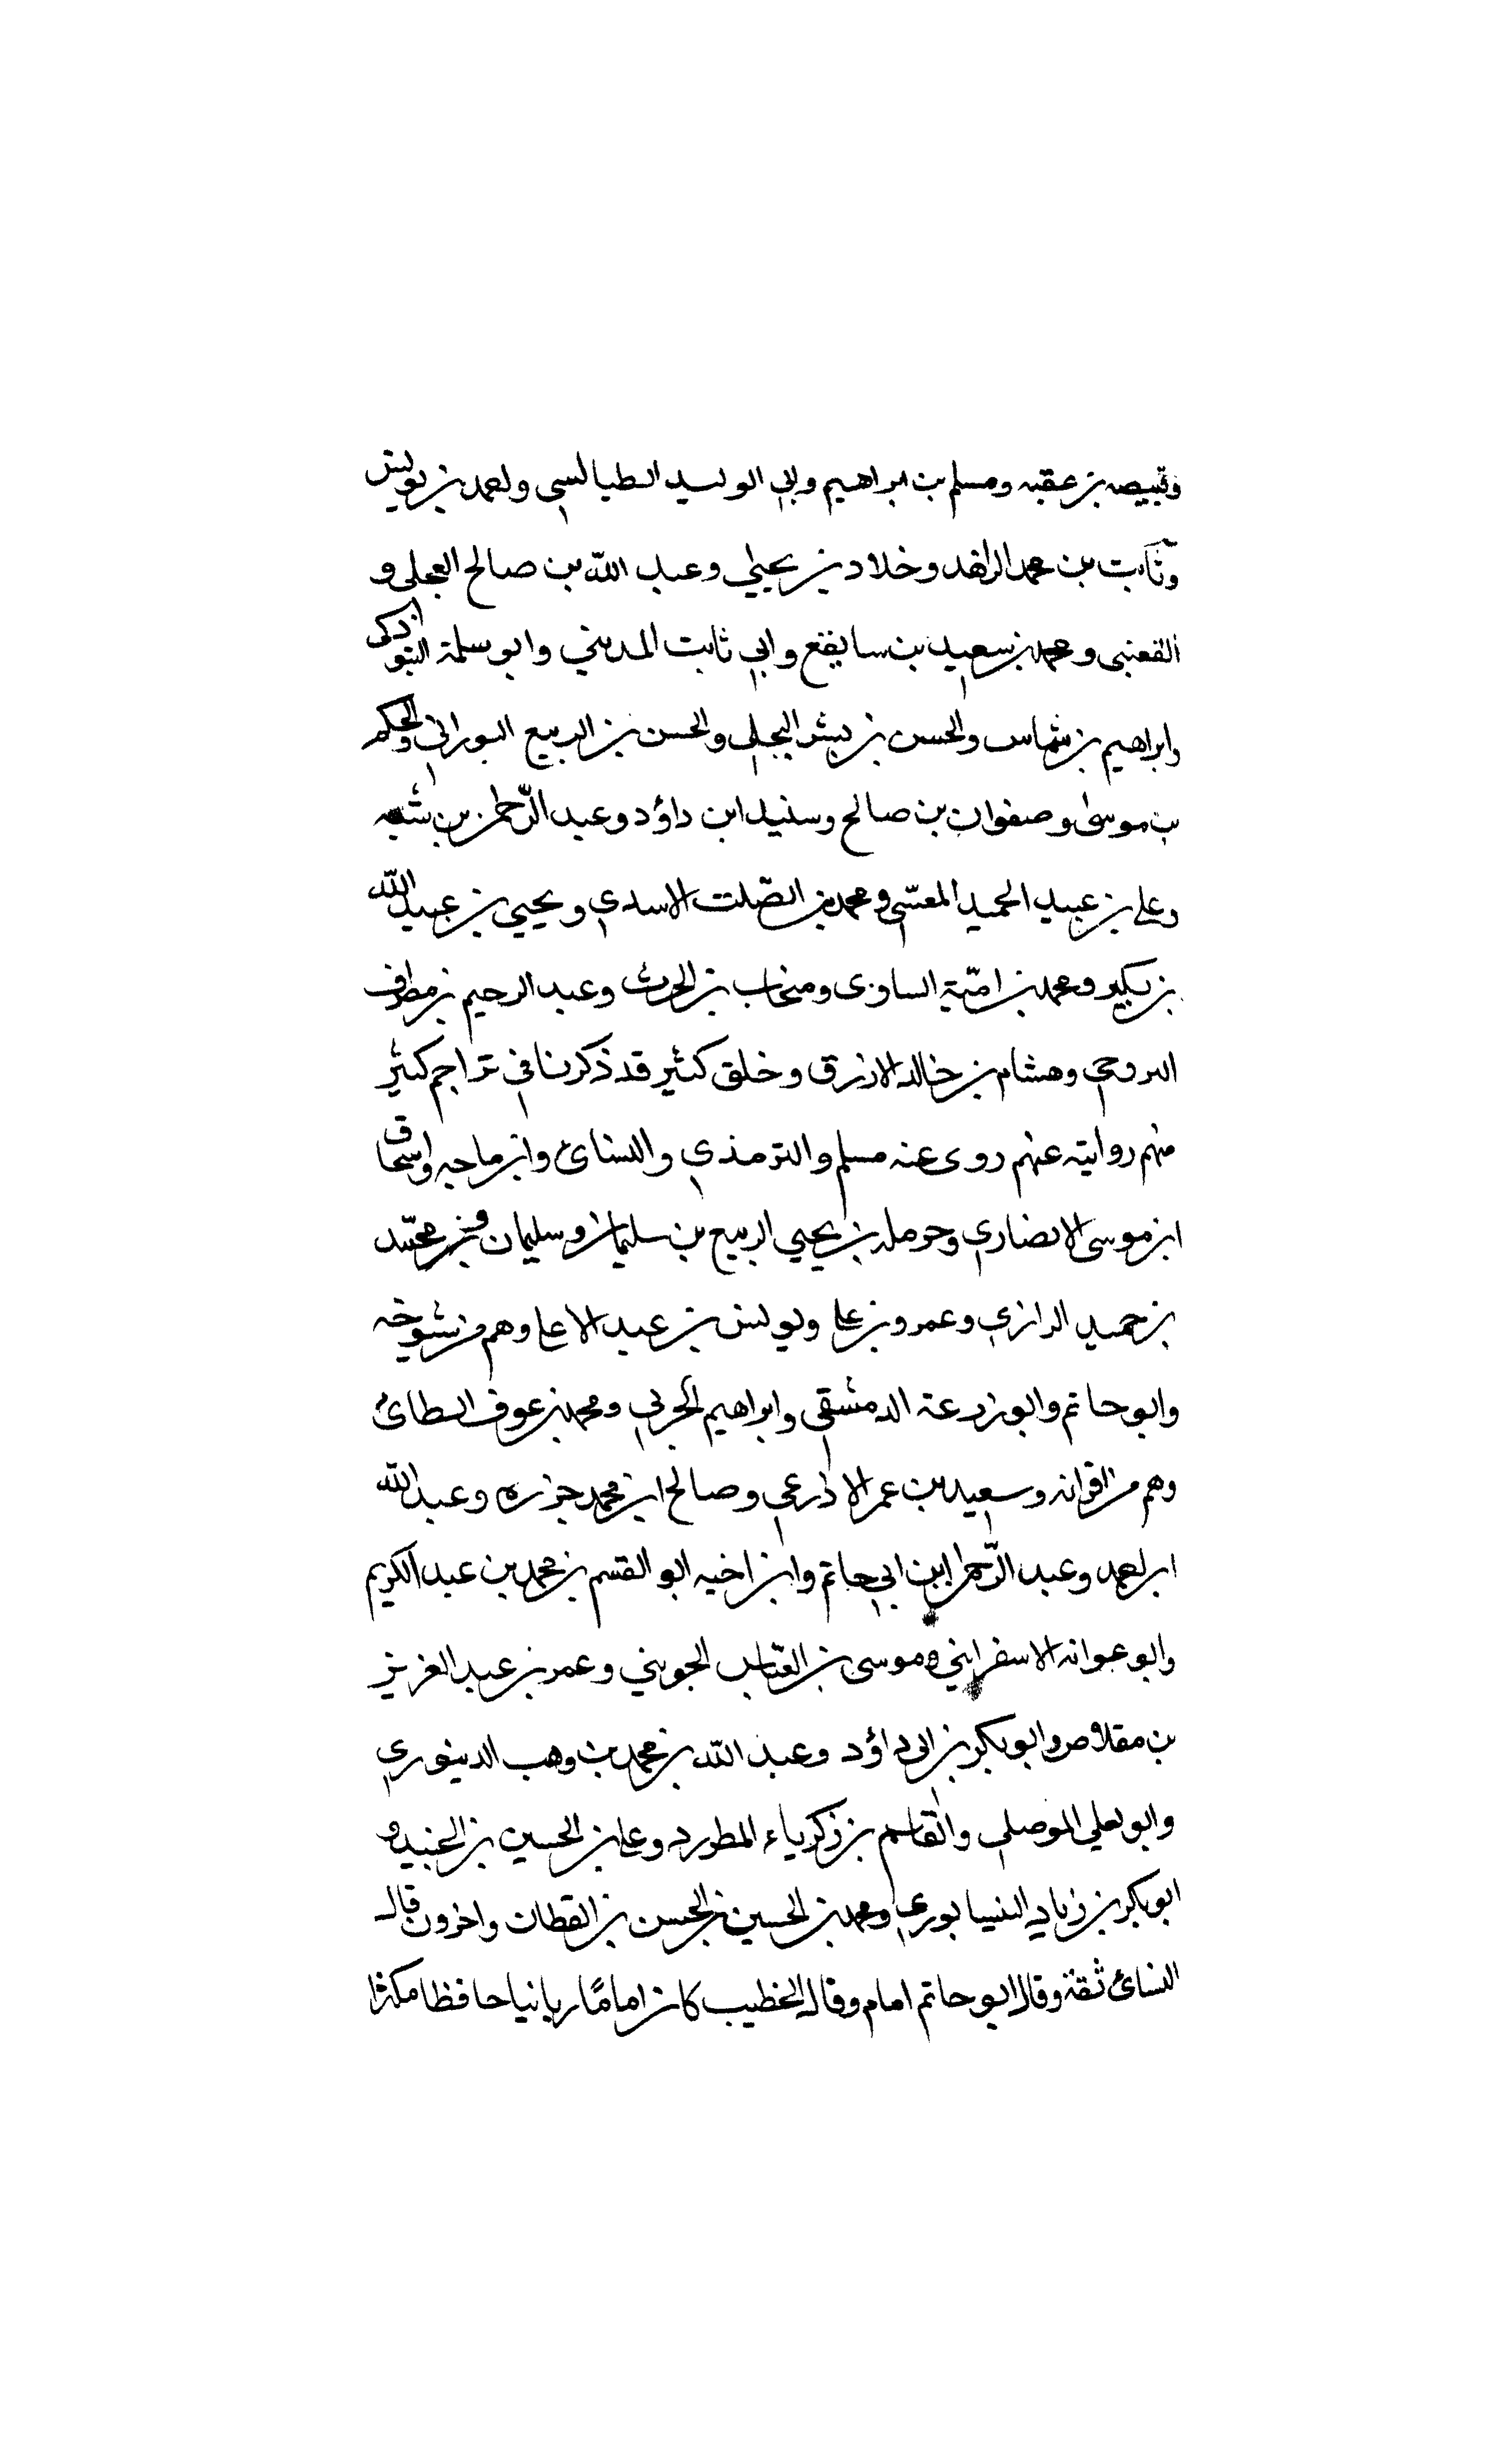 وقبيصه بن عقبه ومسلم بن ابراهيم وابي الوليد الطيالسي واحمد بن يونس
وثابت بن محمد الزاهد وخلاد بن يحيى وعبد الله بن صالح العجلي و
القعنبي ومحمد بن سعيد بن سابق وابي ثابت المديني وابو سلمة التبوذكى
وابراهيم بن شماس والحسن بن بشر البجلي والحسن بن الربيع البوراني والحكم
بن موسى وصفوان بن صالح وسنيد ابن داؤد وعبد الرّحمن بن شيبه
وعلي بن عبد الحميد المعنّي ومحمد بن الصّلت الاسدي ويحيي بن عبد الله
بن بكير ومحمد بن اميّة الساوى ومنجاب بن الحرث وعبد الرحيم بن مطرف
السروجي وهشام بن خالد الازرق وخلق كثير قد ذكرنا في تراجم كثير
منهم روايته عنهم روى عنه مسلم والترمذي والنسائ وابن ماجه واسحاق
ابن موسى الانصاري وحرمله بن يحيي الربيع بن سليمان وسليمان ومحمّد
بن حميد الرازي وعمرو بن علي ويونس بن عبد الاعلي وهم من شيوخه
وابو حاتم وابو زرعة الدمشقي وابراهيم الحربي ومحمد بن عوف الطائ
وهم من اقرانه وسعيد بن عمر الاذرعي وصالح ابن محمد جزره وعبد الله
ابن احمد وعبد الرّحمن ابن ابي حاتم وابن اخيه ابو القسم بن محمد بن عبد الكريم
وابو عوانه الاسفرايني وموسى بن العبّاس الجويني وعمر بن عبد العزيز
بن مقلاص وابو بكر بن ابي داؤد وعبد الله بن محمد بن وهب الدينوري
وابو يعلي الموصلي والقاسم بن زكرياء المطرز وعلي بن الحسين بن الجنيد و
ابو بكر بن زياد النيسابوري ومحمد بن الحسين بن الحسن بن القطان واخرون قال
النسائ ثقة وقال ابو حاتم امام وقال الخطيب كان اماما ربانيا حافظا مكثرا